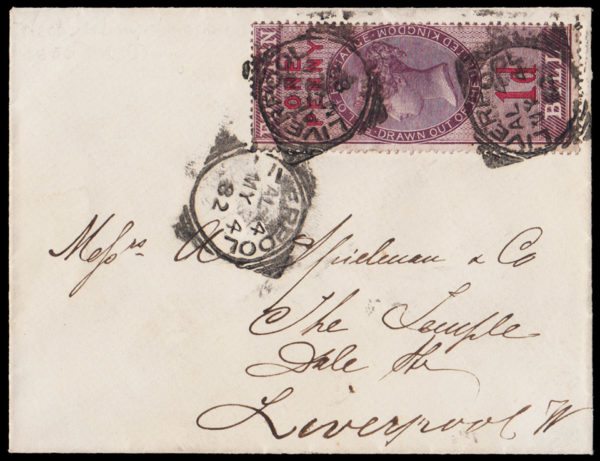 FOREIGN BILL
ONE PENNY
1d
DRAWN OUT OF
UNITED KINGDOM
LIVERPOOL
LIVERPOOL
LIVERPOOL
4
MY 4
82
Messrs A Spielman & Co
The Temple
Dale St
Liverpool W